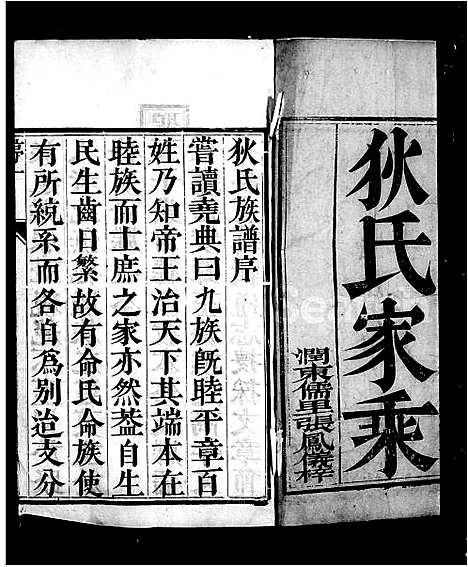 狄氏家乘
潤東儒里張鳳義梓
狄氏族譜序
嘗讀堯典曰九族既睦平章百
姓乃知帝王治天下其端本在
睦族而士庶之家亦然葢自生
民生齒日繁故有命氏命族使
有所統系而各自為別迨支分